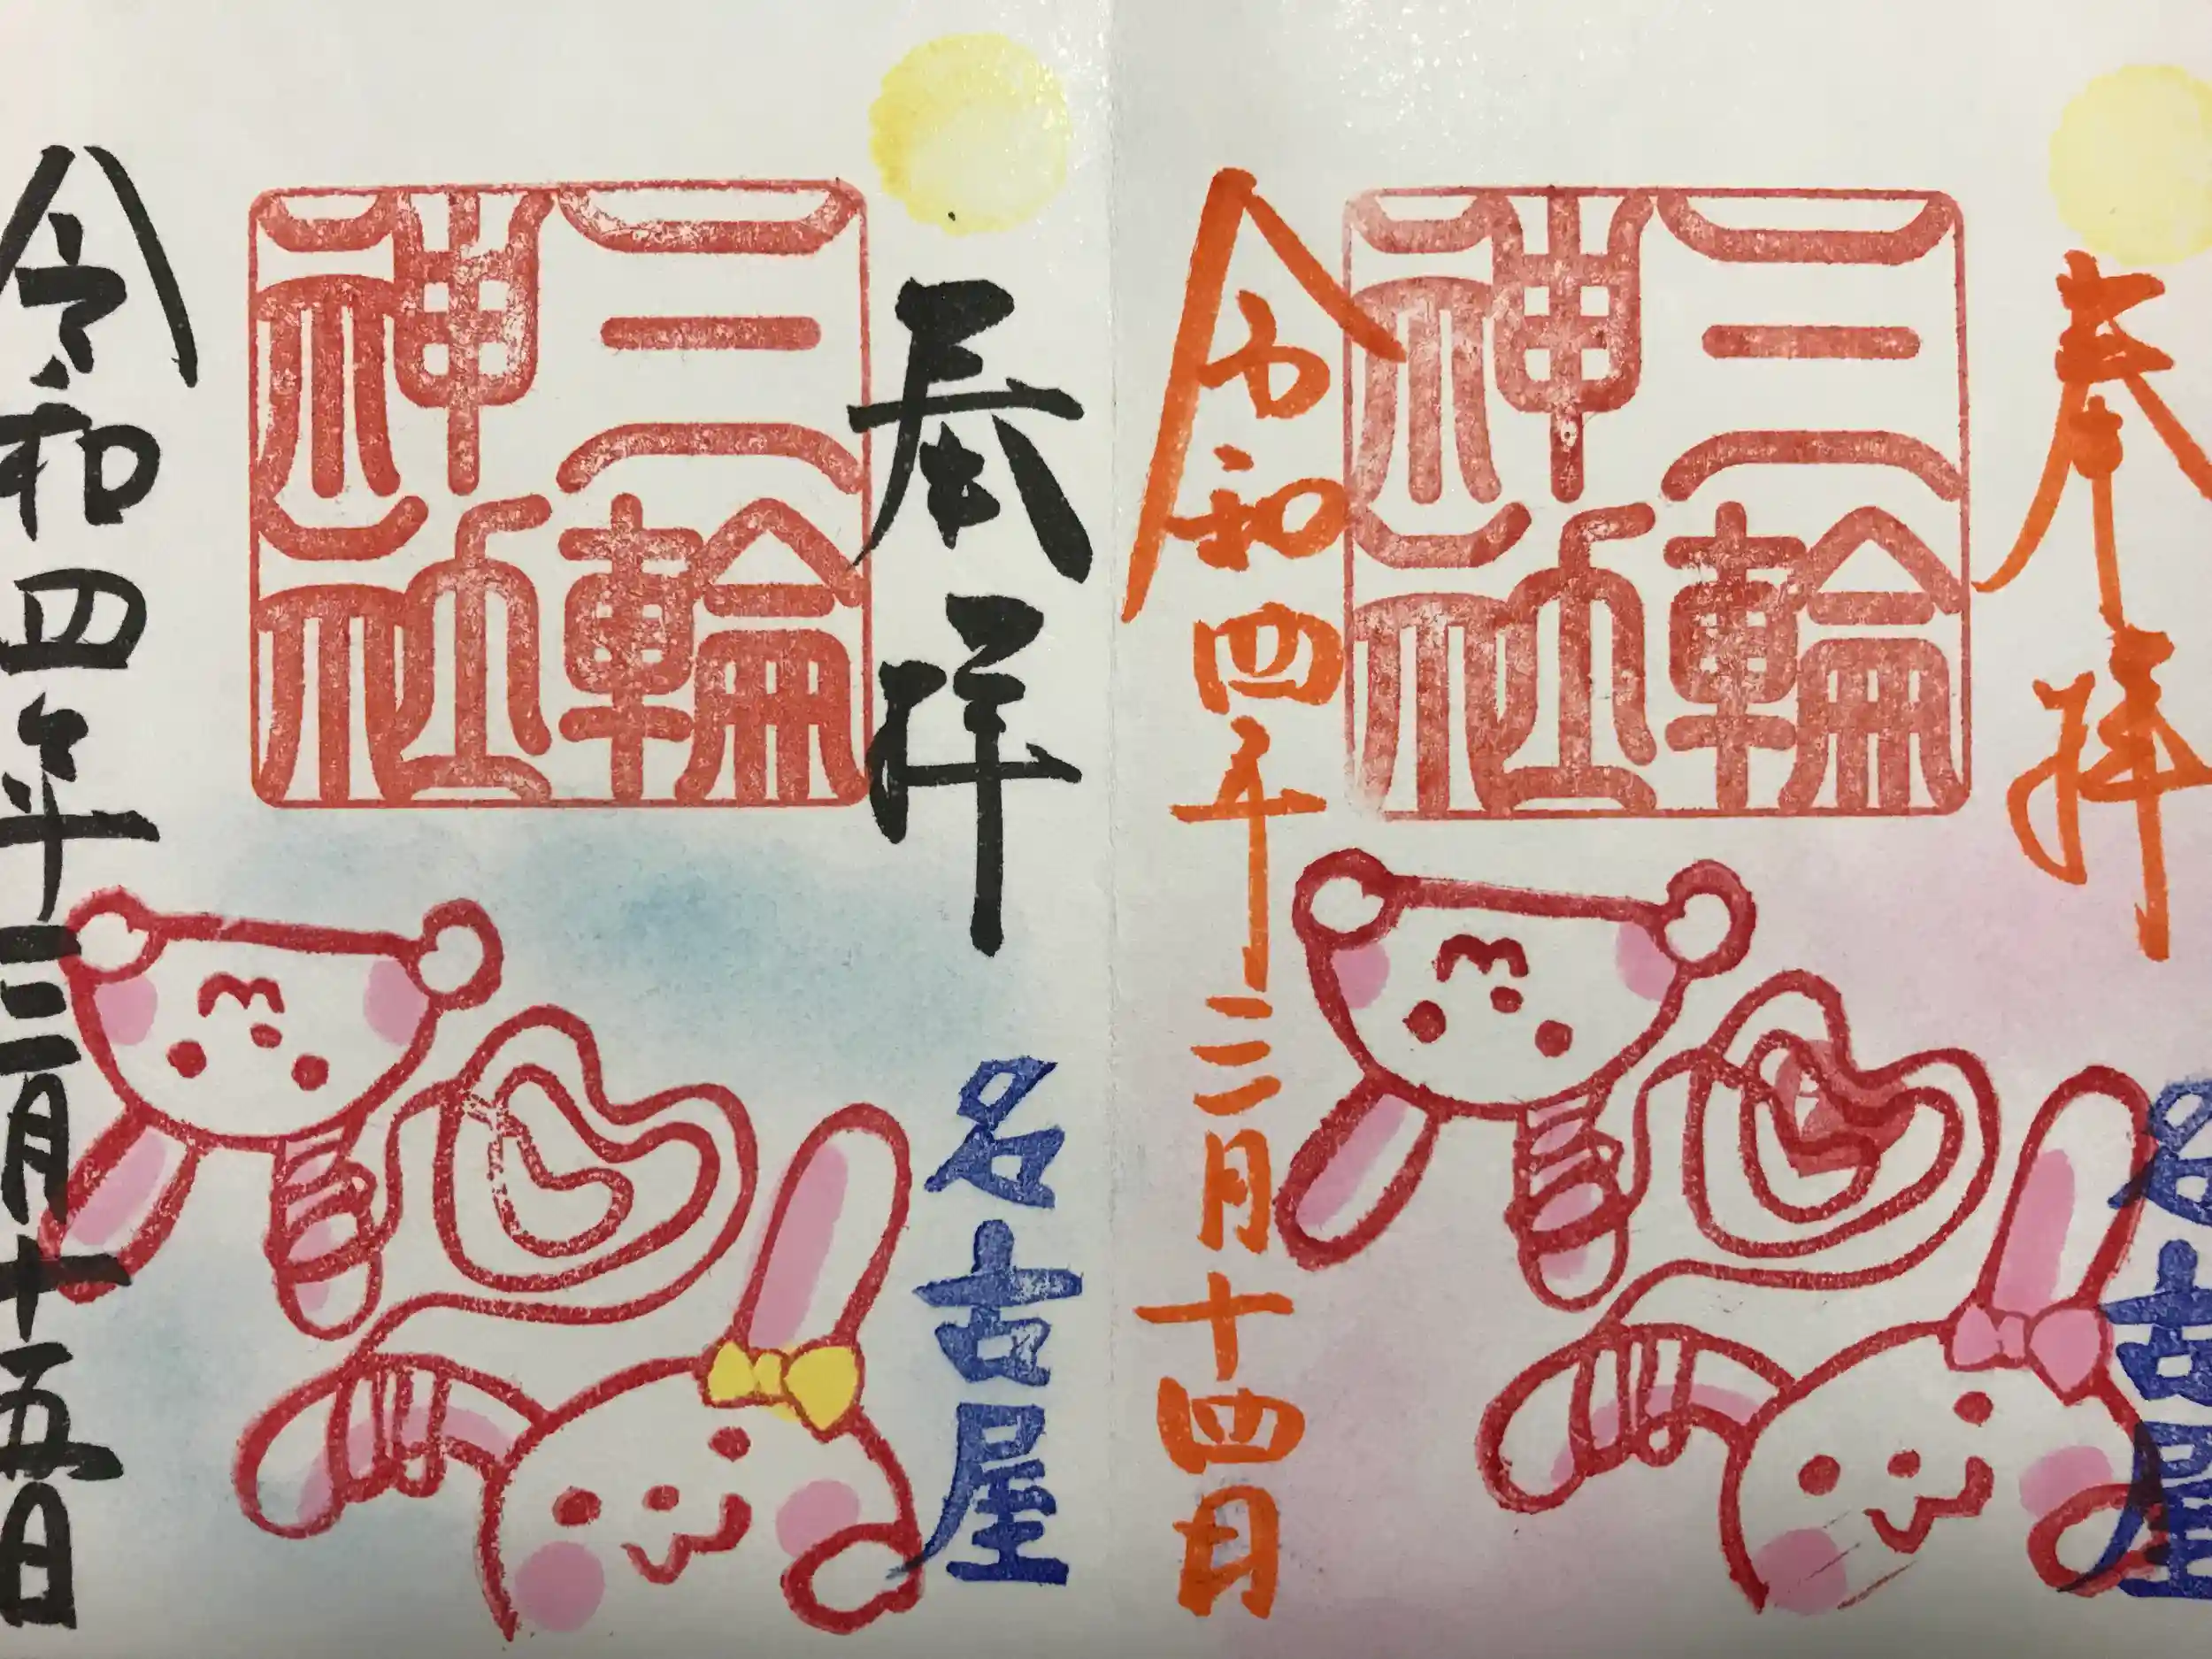 奉拝
名古屋
三輪
神社
令和四年三月十四日
奉拝
名古屋
三輪
神社
令和四年三月十五日